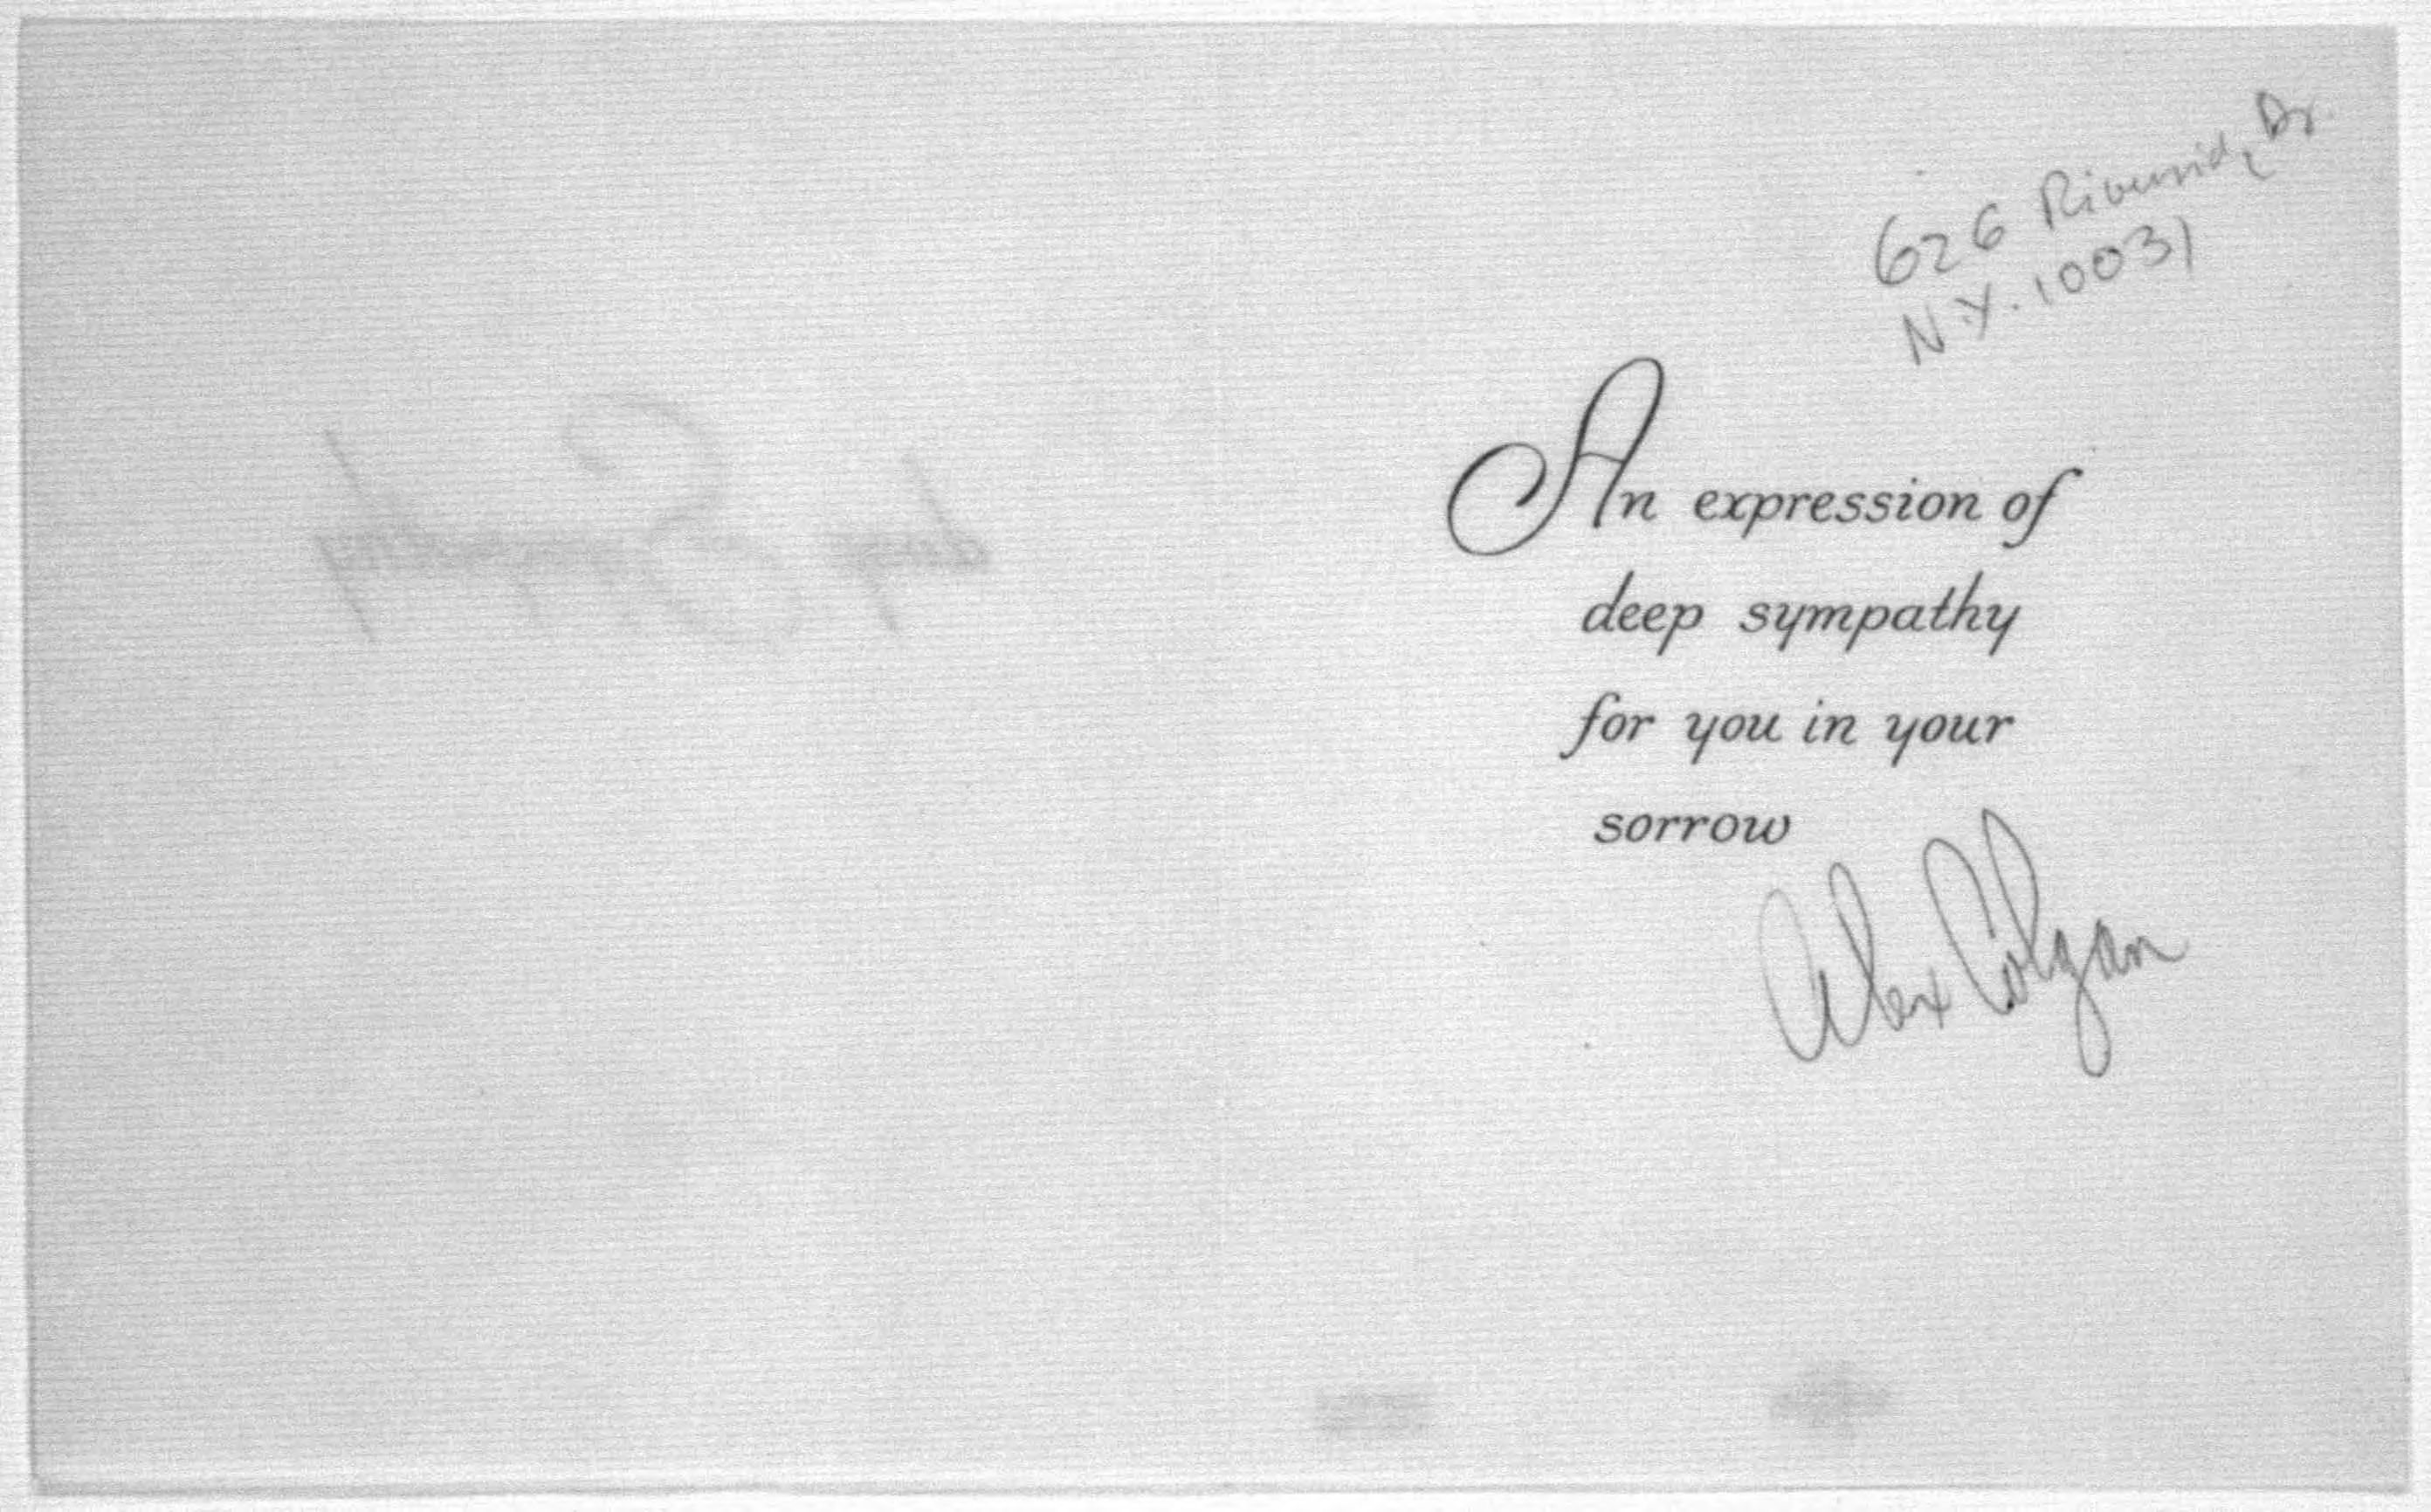 626 Riverside Dr.
N.Y. 10031
An expression of
deep sympathy
for you in your
sorrow
Alex Colgan
deep Sympathy